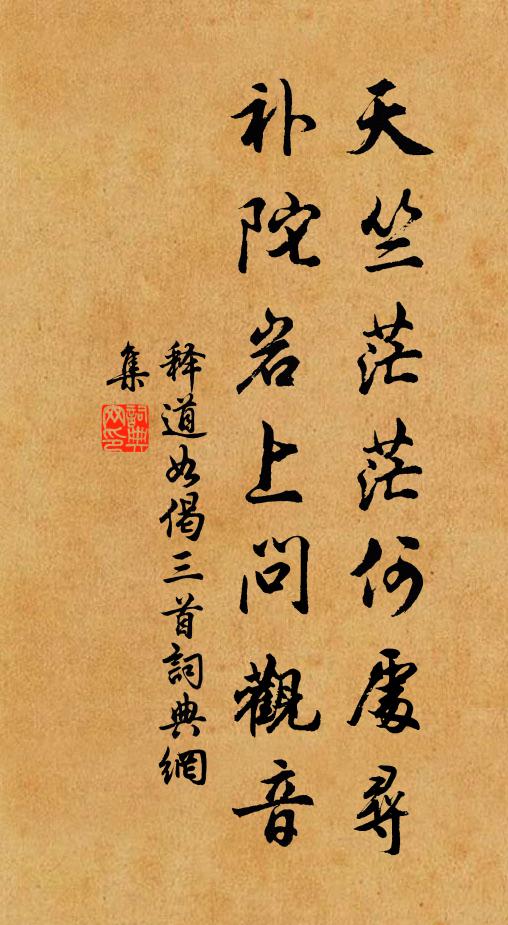 天竺茫茫何處尋
补陀岩上問觀音
释道如偈三首詞典網
集
詞典網印